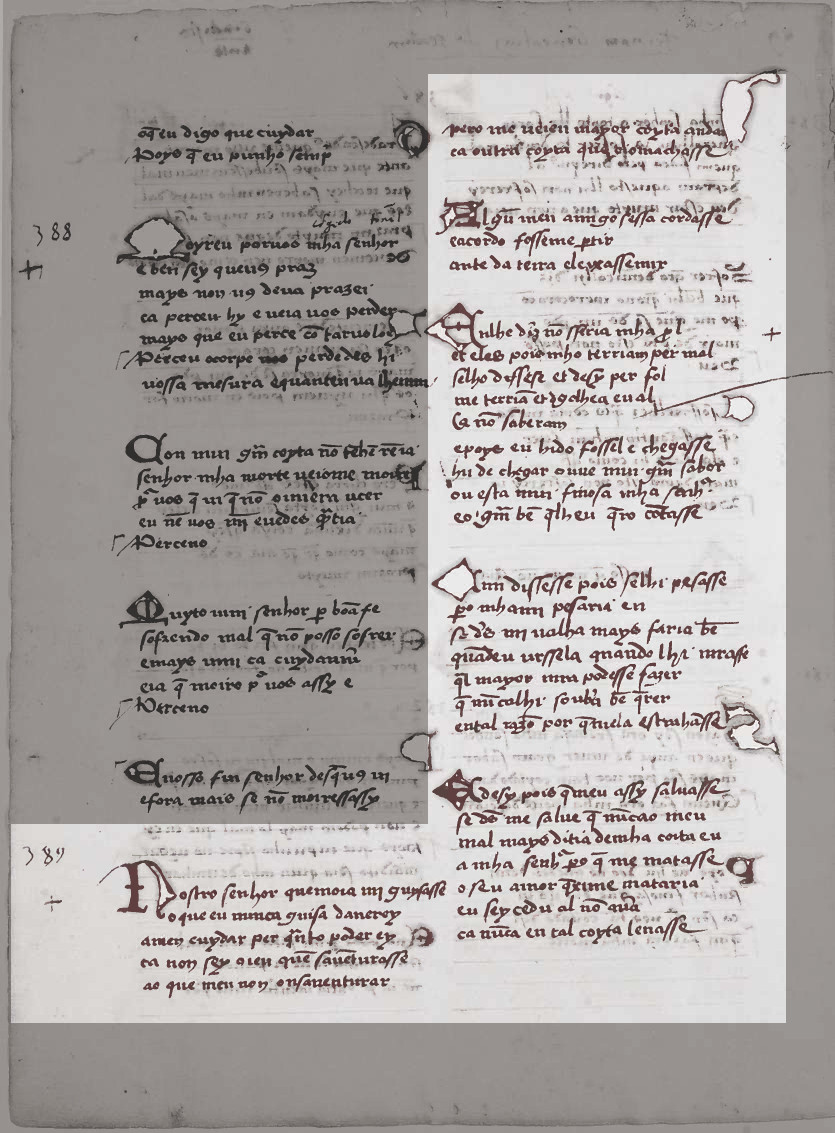 oq̄ eu digo que cuydar
Poys q̄ eu punho semp̄
388
Moyreu poruos mha senhor
e ben sey queuꝯ praz
mays non uꝯ deua prazer
ca perceu hy e veia uos perder
mays que eu perce cō taruolog
Perceu ocorpe uos perdedes hi
uossa mesura equanteu ua
Con mui gm̄ coyta nō
senhor mha morte ueiome moire
pͣ uos q̄
eu nē uos
Perceno
Muyto mi senhor p̄ boā fe
sofrendo mal q̄ nō posso sofrer
emays mi ca cuydaua
eia q̄ moiro pͣ uos assy e
Perceno
Enosso fui senhor desq̄ uꝯ ui
efora mais se nō moiressassy
389
Nostro senhor quemoia mi guysasse
oque eu nunca guisa danerey
amen cuydar per q̄nto poder ey
ca non sey quē sauēturasse
ao que meu non onsauenturar
pero me ueien mayor coyta andar
ca outra coyta que
Algū meu amigo sessa cordasse
eacordo fosseme p̄tir
ante da terra eleyxassemir
Enlhe diz nō sseria mha p̄l
et eles pois mho terriam per mal
selho dissese et desy per fol
me terriā et eu al
Ca nō saberam
epoys eu hido fossel e chegasse
hu de chegar ouue mui gm̄ sabor
ou esta mui fmosa mha senhͬ
eo gm̄ bē q̄lheu q̄ro cōtasse
Emi dissesse pois selhi pesasse
p̄o mhami pesaria en
si ds̄ mi ualha mays faria bē
quādeu uessela quando lhi mrasse
q̄l mayor mra podesse fazer
q̄ nūcalhi soubi bē q̄rer
ental razō por q̄mela estrahāsse
Edesy pois q̄meu assy saluasse
se dō me salue q̄ nūcao meu
mal mays diria demha coita eu
a mha senhͬ p̄o q̄ me matasse
o seu amor q̄xime mataria
eu sey cedu al nō
ca nūca en tal coyta leuasse